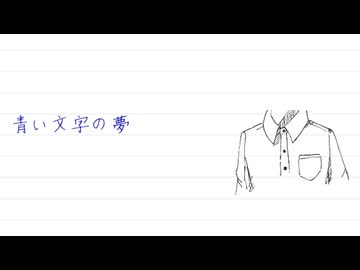 青い文字の夢